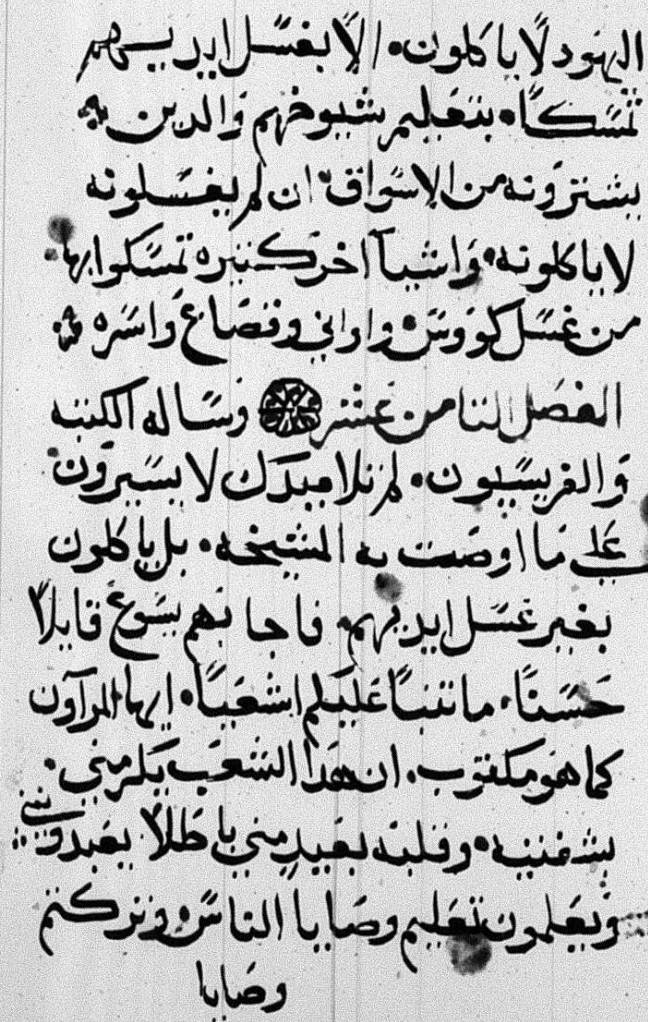 اليهود لا ياكلون. الا بغسل ايديهم
تمسكًا. بتعليم شيوخهم والدين
يشترونه من الاسواق. ان لم يغسلونه
لا ياكلونه. واشيآ اخر كثيره تمسكوا بها.
من غسل كووس. واواني وقصاع واسره
الفصل الثامن عشر وساله الكتبه
والفريسيون. لم تلاميدك لا يسيرون
على ما اوصت به المشيخه. بل ياكلون
بغير غسل ايديهم. فاجابهم يسوع قايلاً
حسنًا. ما تنبا عليكم اشعيا. ايها المرآون
كما هو مكتوب. ان هدا الشعب يكرمني.
بشفتيه. وقلبه بعيد مني باطلاً يعبدونني
ويعلمون تعليم وصايا الناس. وتركتم
وصايا